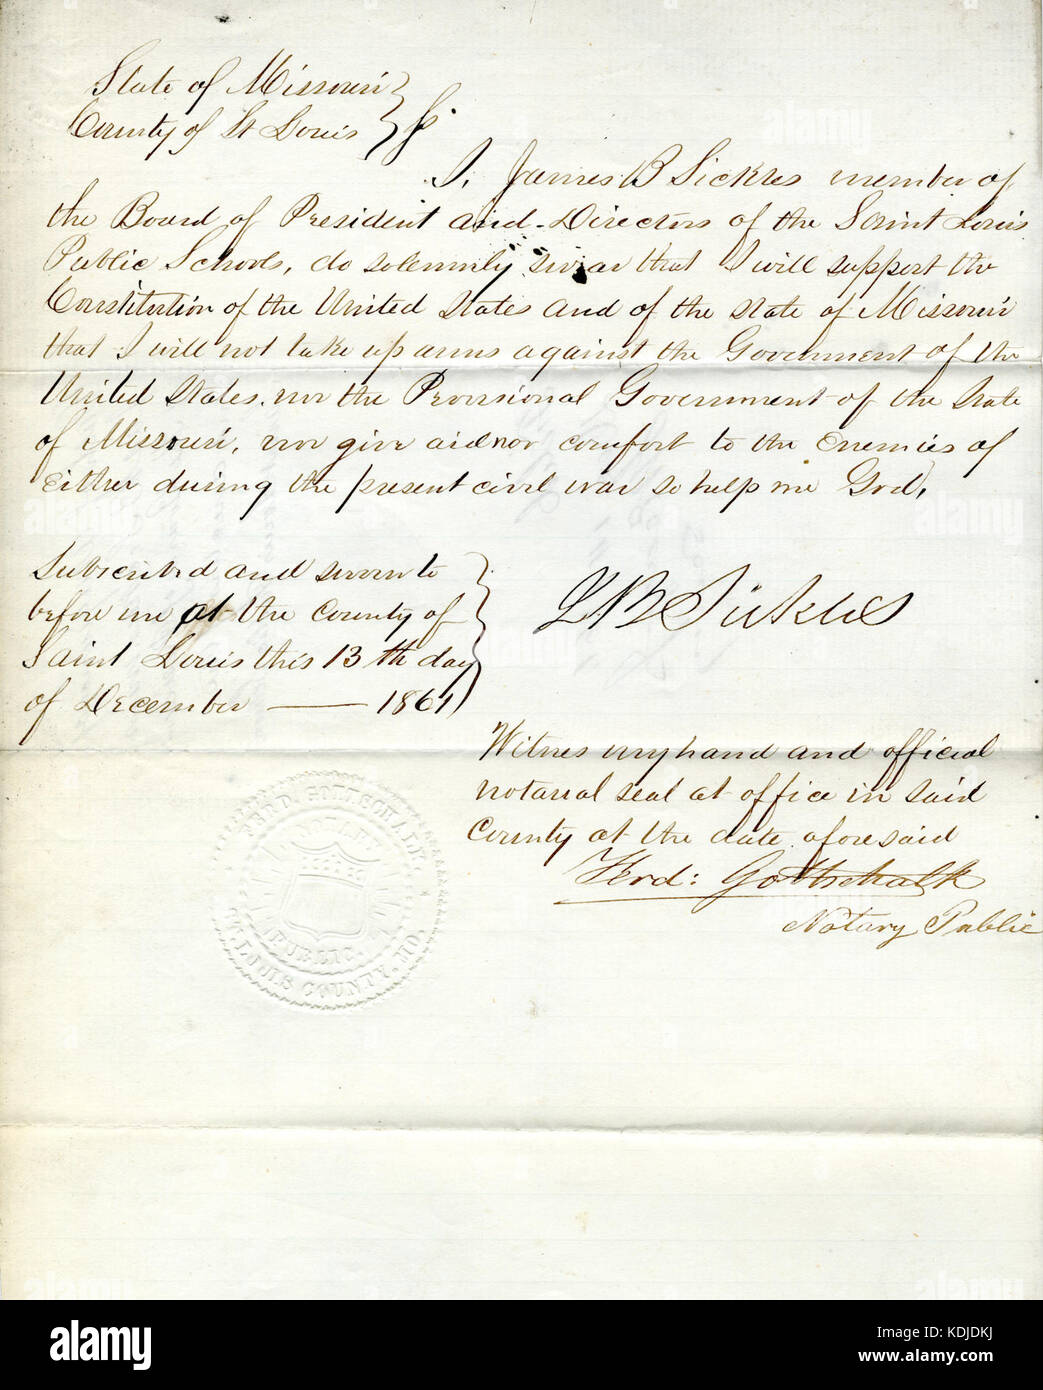 State of Missouri
County of St Louis } Ss
I, James B Sickles member of
the Board of President and Directors of the Saint Louis
Public Schools, do solemnly swear that I will support the
Constitution of the United States and of the State of Missouri
that I will not take up arms against the Government of the
United States, nor the Provisional Government of the State
of Missouri, nor give aid nor comfort to the Enemies of
Either during the present civil war so help me God,
Subscribed and sworn to
before me at the County of
Saint Louis this 13th day
of December — 1861
J B Sickles
Witnes my hand and official
notarial seal at office in said
County at the date aforesaid
Ferd: Gottschalk
Notary Public
FERD. GOTTSCHALK
NOTARY
PUBLIC.
ST. LOUIS COUNTY, MO.
alamy
Image ID: KDJDKJ
www.alamy.com